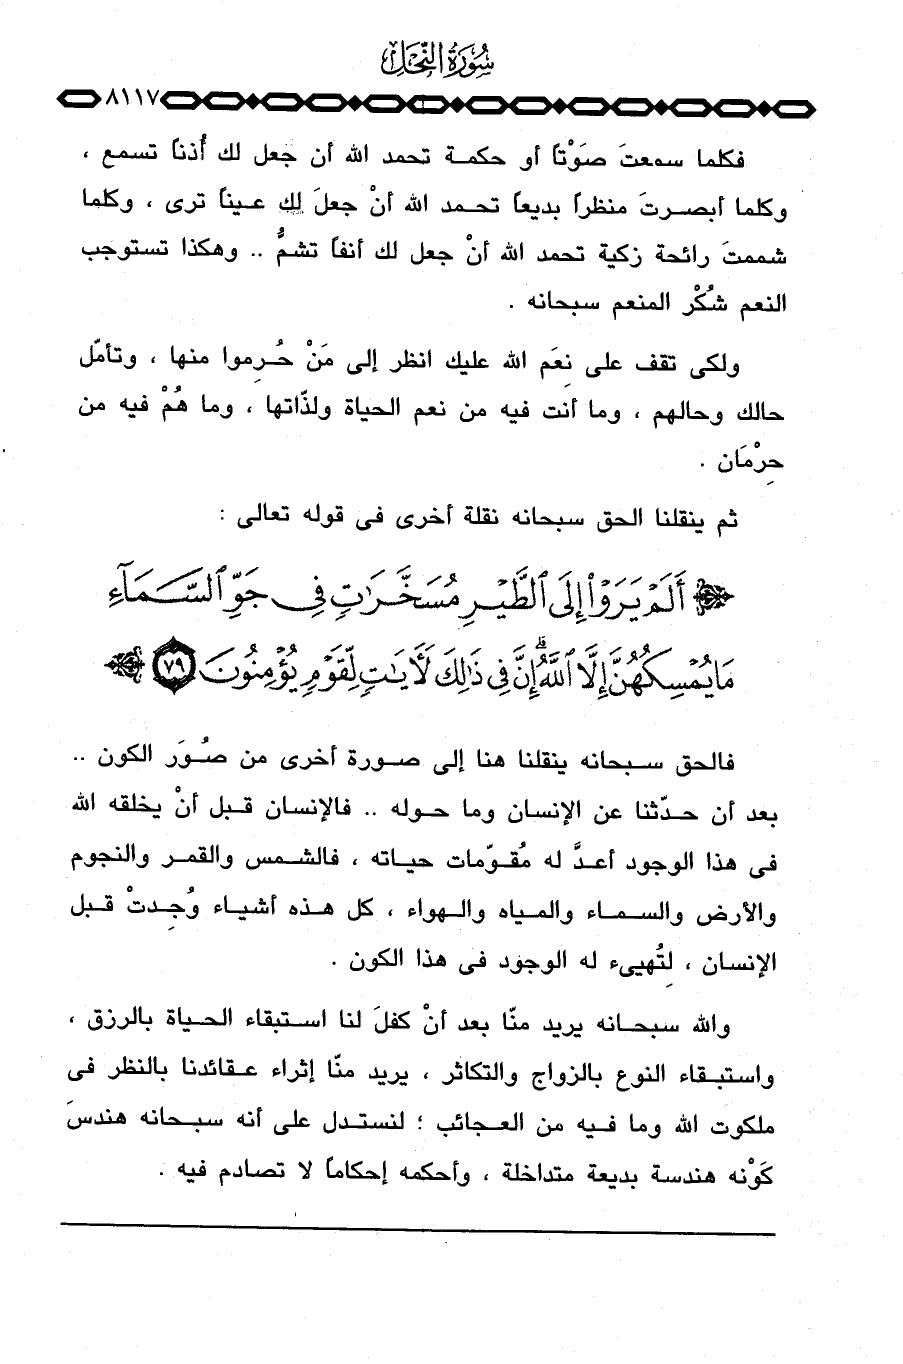 سُورَةُ النَّحْلِ
٨١١٧
فكلما سمعتَ صَوْتاً أو حكمة تحمد الله أن جعل لك أُذناً تسمع ،
وكلما أبصرتَ منظراً بديعاً تحمد الله أنْ جعلَ لك عيناً ترى ، وكلما
شممتَ رائحة زكية تحمد الله أنْ جعل لك أنفاً تشمُّ .. وهكذا تستوجب
النعم شُكْر المنعم سبحانه .
ولكى تقف على نِعَم الله عليك انظر إلى مَنْ حُرِموا منها ، وتأمّل
حالك وحالهم ، وما أنت فيه من نعم الحياة ولذّاتها ، وما هُمْ فيه من
حِرْمَان .
ثم ينقلنا الحق سبحانه نقلة أخرى فى قوله تعالى :
﴿ أَلَمْ يَرَوْا۟ إِلَى ٱلطَّيْرِ مُسَخَّرَٰتٍ فِى جَوِّ ٱلسَّمَآءِ
مَا يُمْسِكُهُنَّ إِلَّا ٱللَّهُ ۗ إِنَّ فِى ذَٰلِكَ لَـَٔايَـٰتٍ لِّقَوْمٍ يُؤْمِنُونَ ٧٩ ﴾
فالحق سبحانه ينقلنا هنا إلى صورة أخرى من صُوَر الكون ..
بعد أن حدّثنا عن الإنسان وما حوله .. فالإنسان قبل أنْ يخلقه الله
فى هذا الوجود أعدَّ له مُقوّمات حياته ، فالشمس والقمر والنجوم
والأرض والسماء والمياه والهواء ، كل هذه أشياء وُجِدتْ قبل
الإنسان ، لِتُهيىء له الوجود فى هذا الكون .
والله سبحانه يريد منّا بعد أنْ كفلَ لنا استبقاء الحياة بالرزق ،
واستبقاء النوع بالزواج والتكاثر ، يريد منّا إثراء عقائدنا بالنظر فى
ملكوت الله وما فيه من العجائب ؛ لنستدل على أنه سبحانه هندسَ
كَوْنه هندسة بديعة متداخلة ، وأحكمه إحكاماً لا تصادم فيه .